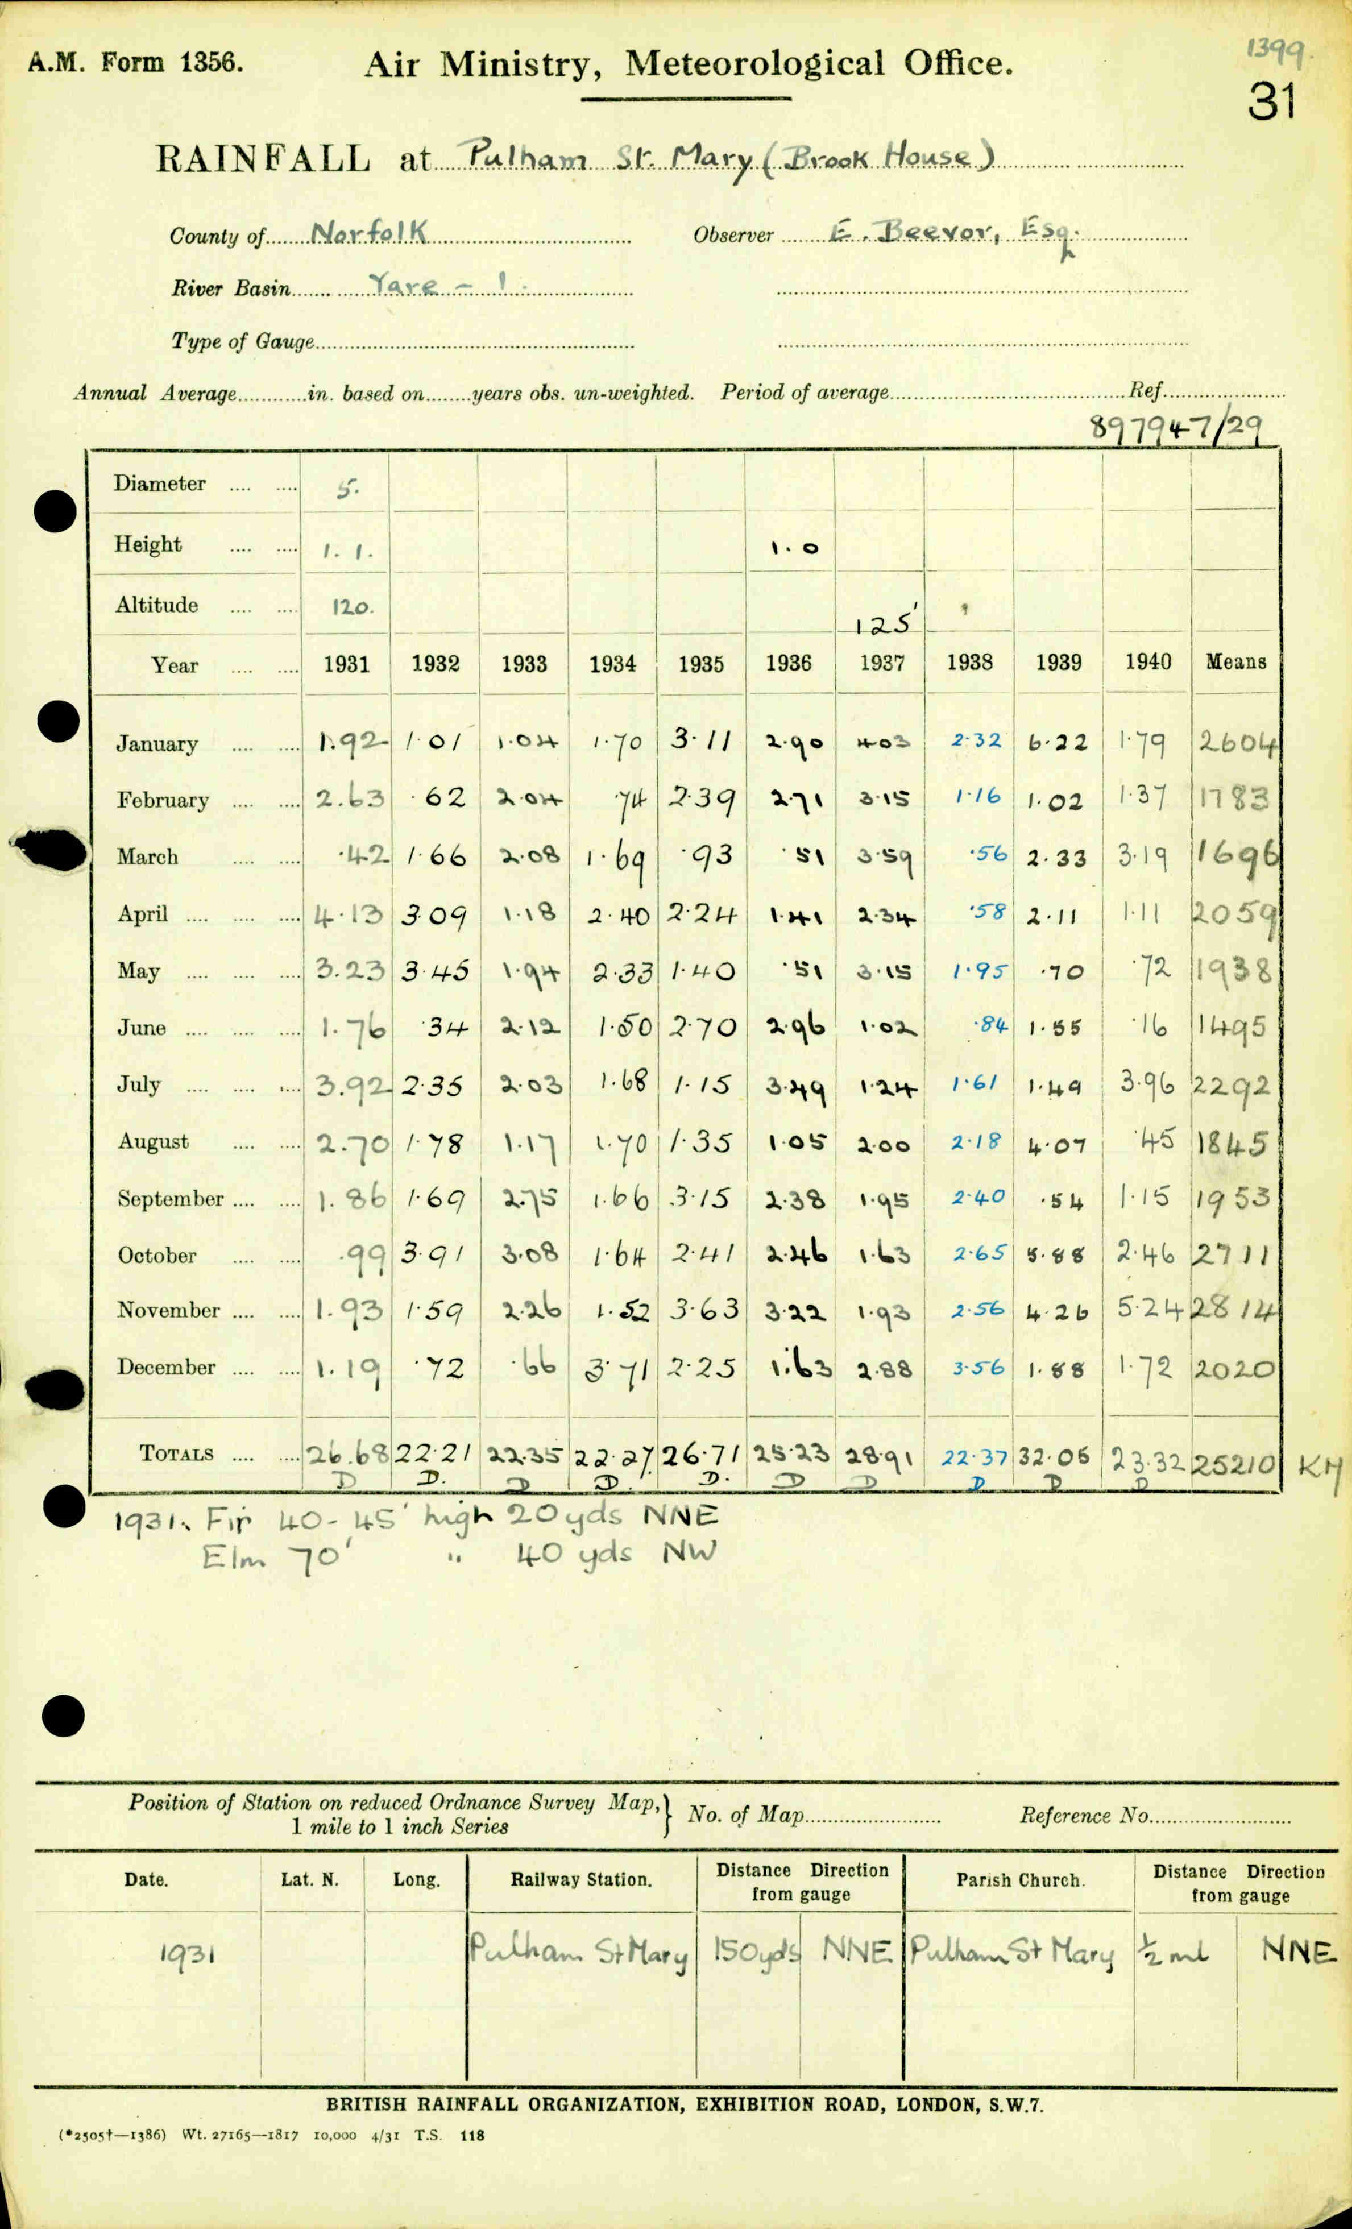 1399.
A.M. Form 1356. Air Ministry, Meteorological Office.
31
RAINFALL at Pulham St. Mary (Brook House)
County of Norfolk Observer E. Beevor, Esq.
River Basin Yare - 1.
Type of Gauge
Annual Average in. based on years obs. un-weighted. Period of average Ref.
897947/29
Diameter 5.
Height 1.1. 1.0
Altitude 120. 125'
Year 1931 1932 1933 1934 1935 1936 1937 1938 1939 1940 Means
January 1.92 1.01 1.04 1.70 3.11 2.90 4.03 2.32 6.22 1.79 2604
February 2.63 .62 2.04 .74 2.39 2.71 3.15 1.16 1.02 1.37 1783
March .42 1.66 2.08 1.69 .93 .51 3.59 .56 2.33 3.19 1696
April 4.13 3.09 1.18 2.40 2.24 1.41 2.34 .58 2.11 1.11 2059
May 3.23 3.45 1.94 2.33 1.40 .51 3.15 1.95 .70 .72 1938
June 1.76 .34 2.12 1.50 2.70 2.96 1.02 .84 1.55 .16 1495
July 3.92 2.35 2.03 1.68 1.15 3.49 1.24 1.61 1.49 3.96 2292
August 2.70 1.78 1.17 1.70 1.35 1.05 2.00 2.18 4.07 .45 1845
September 1.86 1.69 2.75 1.66 3.15 2.38 1.95 2.40 .54 1.15 1953
October .99 3.91 3.08 1.64 2.41 2.46 1.63 2.65 5.88 2.46 2711
November 1.93 1.59 2.26 1.52 3.63 3.22 1.93 2.56 4.26 5.24 2814
December 1.19 .72 .66 3.71 2.25 1.63 2.88 3.56 1.88 1.72 2020
TOTALS 26.68 22.21 22.35 22.27 26.71 25.23 28.91 22.37 32.05 23.32 25210 KH
D D. D D. D. D D D D D
1931. Fir 40-45' high 20 yds NNE
Elm 70' " 40 yds NW
Position of Station on reduced Ordnance Survey Map, } No. of Map Reference No.
1 mile to 1 inch Series
Date. Lat. N. Long. Railway Station. Distance Direction Parish Church. Distance Direction
from gauge from gauge
1931 Pulham St Mary 150yds NNE Pulham St Mary ½ ml NNE
BRITISH RAINFALL ORGANIZATION, EXHIBITION ROAD, LONDON, S.W.7.
(*2505†—1386) Wt. 27165—1817 10,000 4/31 T.S. 118